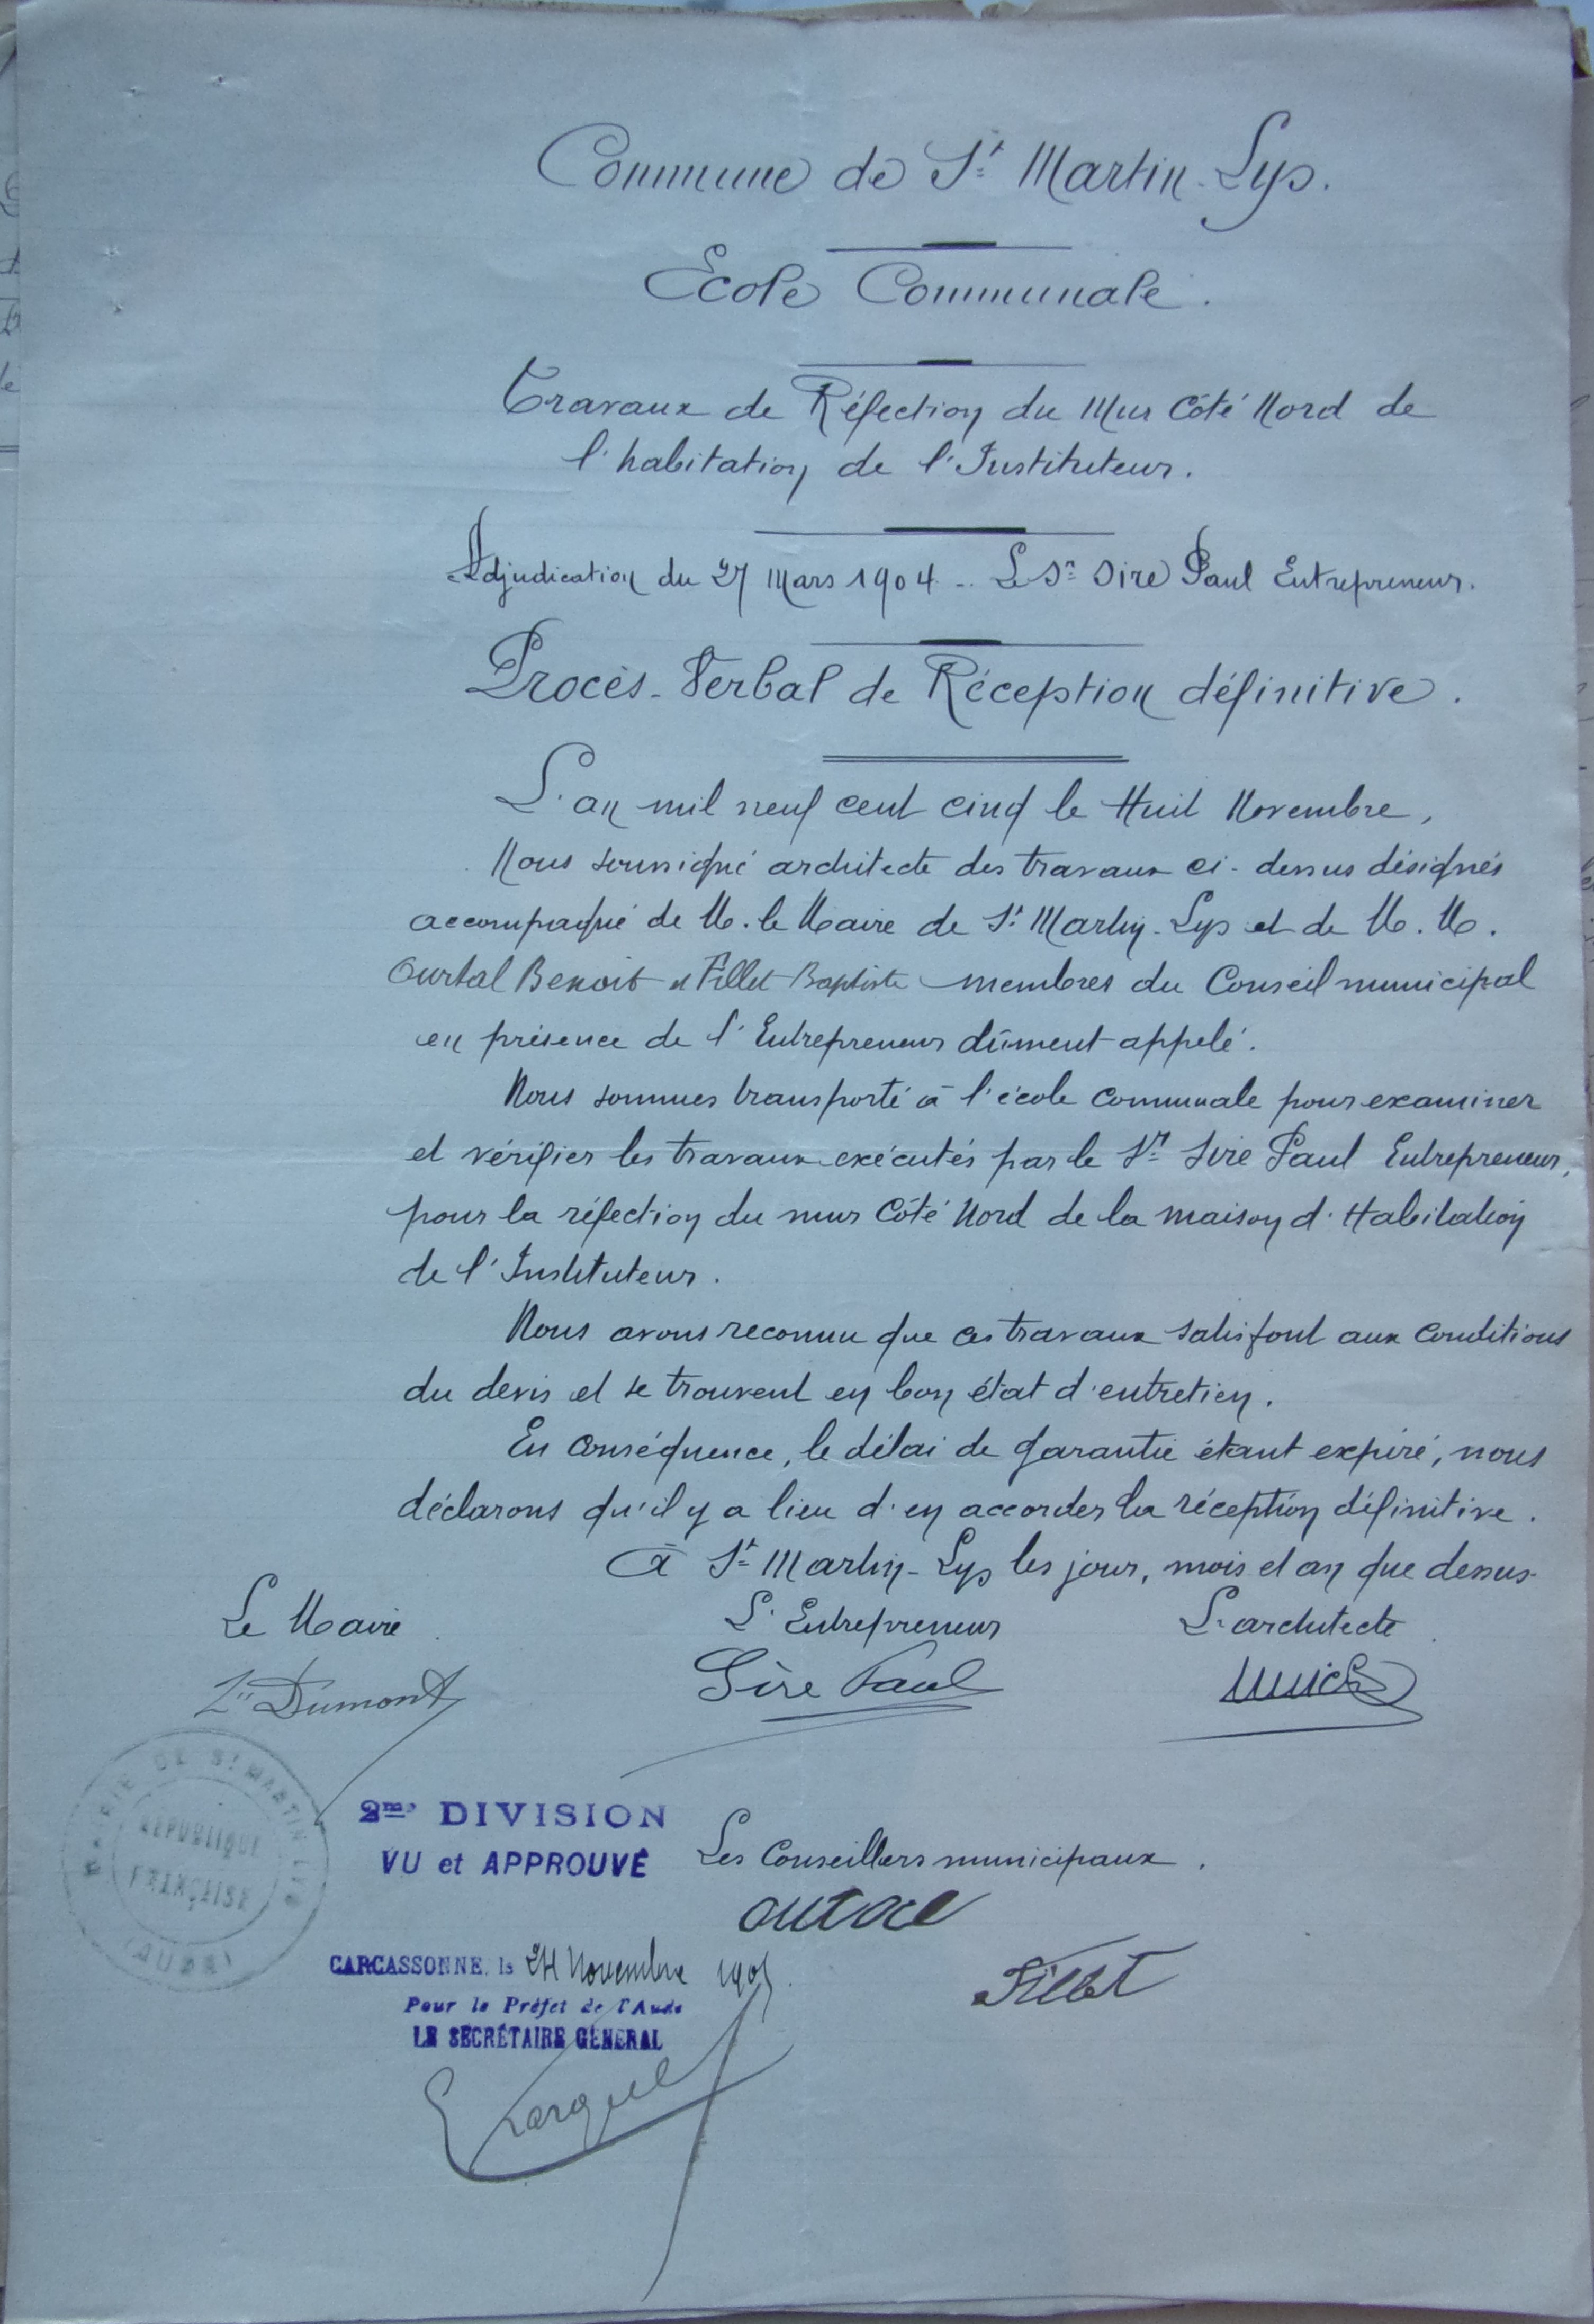 Commune de St Martin-Lys.
Ecole Communale.
Travaux de Réfection du Mur Côté Nord de
l'habitation de l'Instituteur.
Adjudication du 27 Mars 1904 - Le Sr Sire Paul Entrepreneur.
Procès-Verbal de Réception définitive.
L'an mil neuf cent cinq le Huit Novembre,
Nous soussigné architecte des travaux ci-dessus désignés
accompagné de M. le Maire de St Martin-Lys et de M. M.
Ourtal Benoit et Fillet Baptiste membres du Conseil municipal
en présence de l'Entrepreneur dûment appelé.
Nous sommes transporté à l'école communale pour examiner
et vérifier les travaux exécutés par le Sr Sire Paul Entrepreneur,
pour la réfection du mur Côté Nord de la maison d'Habitation
de l'Instituteur.
Nous avons reconnu que ces travaux satisfont aux conditions
du devis et se trouvent en bon état d'entretien.
En conséquence, le délai de garantie étant expiré, nous
déclarons qu'il y a lieu d'en accorder la réception définitive.
A St Martin-Lys les jour, mois et an que dessus.
Le Maire L'Entrepreneur L'architecte
Dumont Sire Paul
MAIRIE DE St MARTIN LYS
RÉPUBLIQUE
FRANÇAISE
(AUDE)
2me DIVISION
VU et APPROUVÉ
Les Conseillers municipaux.
CARCASSONNE, le 24 Novembre 1905
Fillet
Pour le Préfet de l'Aude
LE SECRÉTAIRE GÉNÉRAL